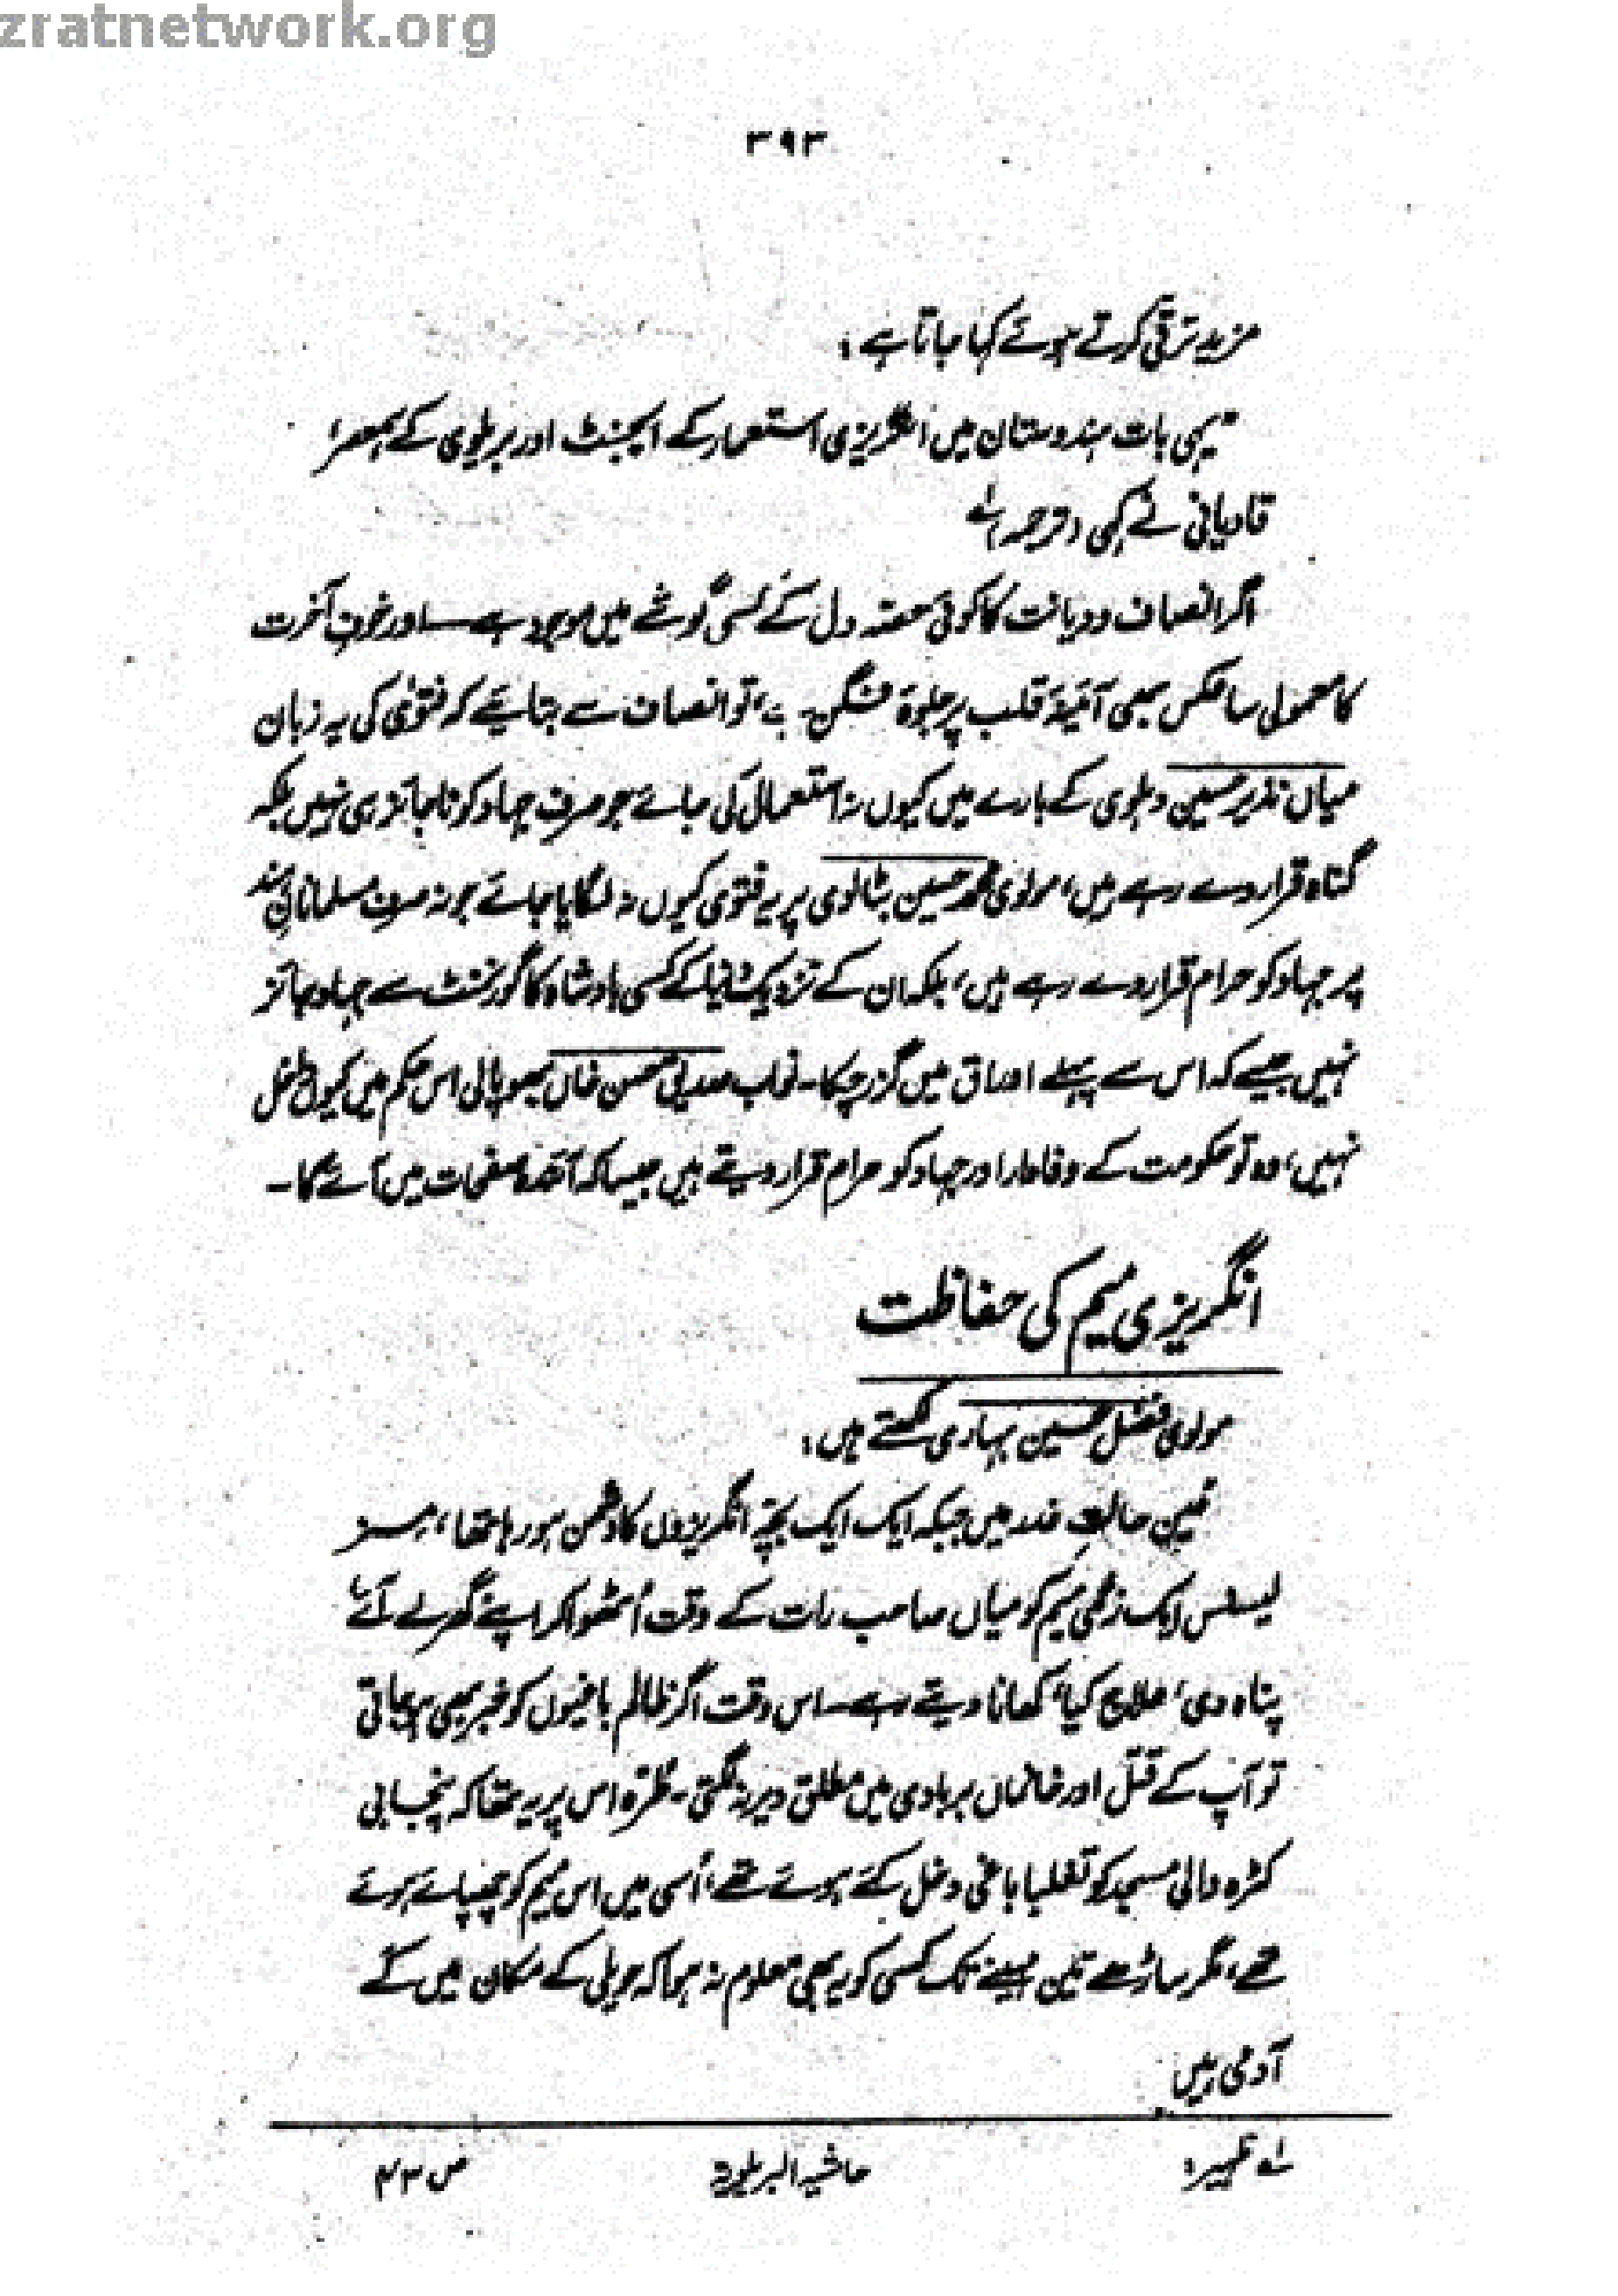 zratnetwork.org
۳۹۳
مزید ترقی کرتے ہوئے کہا جاتا ہے:
یہی بات ہندوستان میں انگریزی استعمار کے ایجنٹ اور بریلوی کے ہمعصر
قادیانی نے کہی (ترجمہ)
اگر انصاف و دیانت کا کوئی حصہ دل کے کسی گوشے میں موجود ہے اور خوفِ آخرت
کا معمولی سا عکس بھی آئینۂ قلب پر جلوہ فگن ہے، تو انصاف سے بتائیے کہ فتویٰ کی یہ زبان
میاں نذیر حسین دہلوی کے بارے میں کیوں نہ استعمال کی جائے جو صرف جہاد کو ناجائز ہی نہیں بلکہ
گناہ قرار دے رہے ہیں، مولوی محمد حسین بٹالوی پر یہ فتویٰ کیوں نہ لگایا جائے جو نہ صرف مسلمانانِ ہند
پر جہاد کو حرام قرار دے رہے ہیں، بلکہ ان کے نزدیک دنیا کے کسی بادشاہ کا گورنمنٹ سے جہاد جائز
نہیں جیسے کہ اس سے پہلے اوراق میں گزر چکا۔ نواب صدیق حسن خاں بھوپالی اس حکم میں کیوں داخل
نہیں، وہ تو حکومت کے وفادار اور جہاد کو حرام قرار دیتے ہیں جیسا کہ آئندہ صفحات میں آئے گا۔
انگریزی میم کی حفاظت
مولوی فضل حسین بہاری لکھتے ہیں:
عین حالتِ غدر میں جبکہ ایک ایک بچہ انگریزوں کا دشمن ہو رہا تھا، مسز
لیسنس ایک زخمی میم کو میاں صاحب رات کے وقت اُٹھوا کر اپنے گھر لے آئے
پناہ دی، علاج کیا، کھانا دیتے رہے۔ اس وقت اگر ظالم باغیوں کو خبر بھی ہو جاتی
تو آپ کے قتل اور خانماں بربادی میں مطلق دیر نہ لگتی۔ طُرّہ اس پر یہ تھا کہ پنجابی
کٹرہ والی مسجد کو تغلبا باغی دخل کئے ہوئے تھے، اُسی میں اس میم کو چھپائے ہوئے
تھے، مگر ساڑھے تین مہینے تک کسی کو یہ بھی معلوم نہ ہوا کہ حویلی کے مکان میں کے
آدمی ہیں
لہ ظہیر: حاشیہ البریلویۃ ص ۴۳